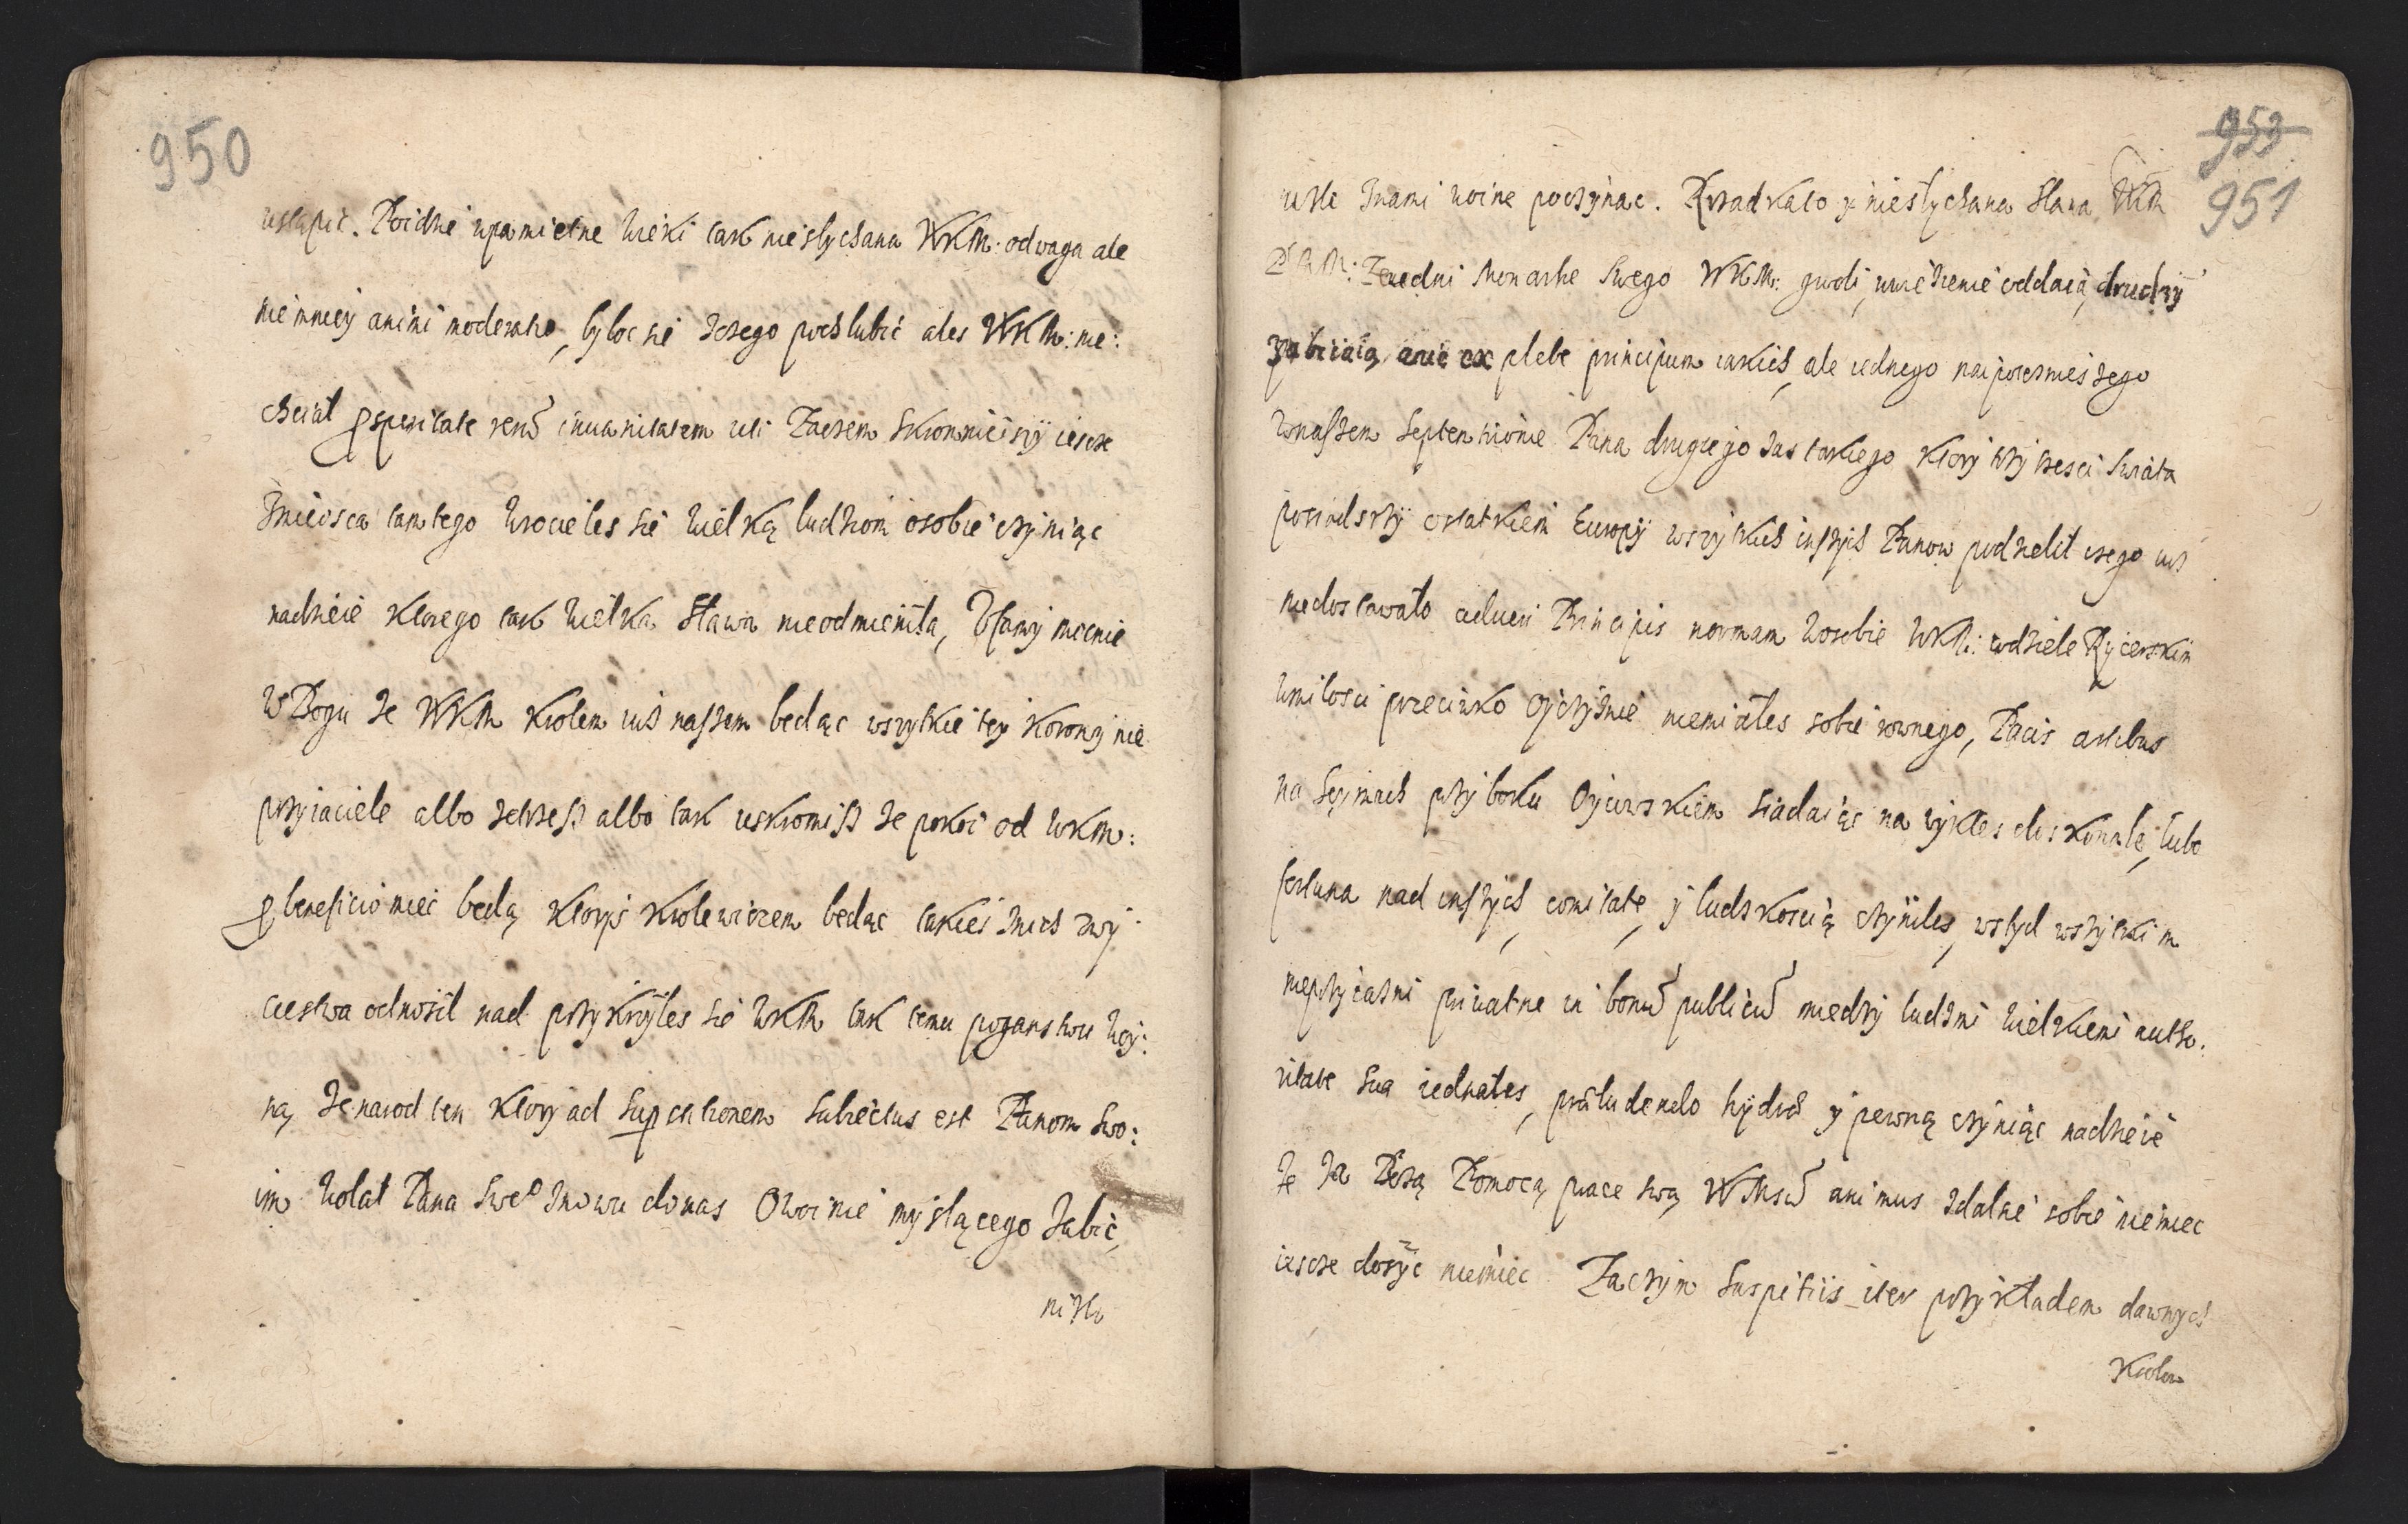 950
ustąpić. Poidzie wpamietne wieki tak niesłychana WKM: odwaga ale
niemniey animi moderatio, byłoć sie sczego pochlubić ales WKM: nie:
chciał prosperitate rerū inuanitatem uti Zaczem skromnieiszÿ iescze
zmieisca tamtego wrocieles sie wielką ludziom osobie czyniąc
nadzieie ktorego tak wielka sława nieodmieniła, Ufamy mocnie
w Bogu ze WKM krolem iuż naszem bedąc wszytkie tey korony nie
przyiaciele albo zetrzesz albo tak uskromisz ze pokoi od WKM:
pro beneficio miec bedą ktoryś krolewiczem bedąc takieś znich zwy
ciestwa odnosił nad przykrÿłes sie WKM tak temu poganstwu woy:
ną, ze narod ten ktory ad superstitionem subiectus est Panom swo:
im wolał Pana swe° znowu donas Owoinie myslącego zabić,
niżli
953
951
niżle znami woine poczynac. Rzadka to y niesłychana sława WKM
PNM: Ze iedni Monarhe swego WKM: gwoli, wwiezienie oddaią, drudzÿ
zabiiaią, a nie ex plebe principum iakich, ale iednego naipotesnieiszego
wnaszem Septentrionie Pana drugiego zas takiego ktory trzy czesci swiata
posiadszÿ ostatkiem Europÿ wszytkich inszych Panow podzielił czego iuż
niedostawało adueri Principis normam wosobie WKM: wdziele Rycerskim
wmiłosci przeciwko Oyczyźnie niemiałes sobie rownego, Pacis artibus
na Seymach przy boku Oycowskiem siadaiąc nawykłes doskonale, lubo
fortuna nad inszych, comitate, y ludzkoscią czyniles, wstyd wszytkim
nieprzyiaźni priuatne in bonū publicū miedzy ludzmi wielkiemi autho:
ritate sua iednałes, præludendo hydrᵒ y pewną czyniąc nadzieie
ze za Bożą Pomocą prace swą WKM animus zdalnie sobie niemiec
iescze dosÿc niemiec Zaczym Suspitiis iter przykładem dawnych
Krolow